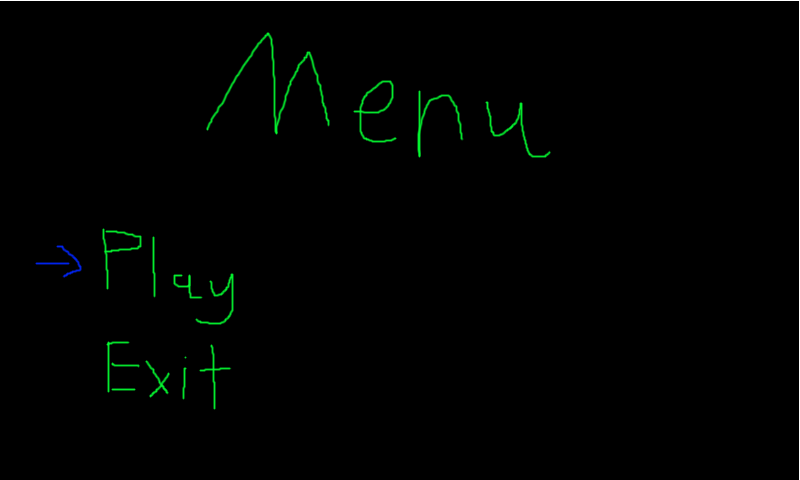 Menu
Play
Exit